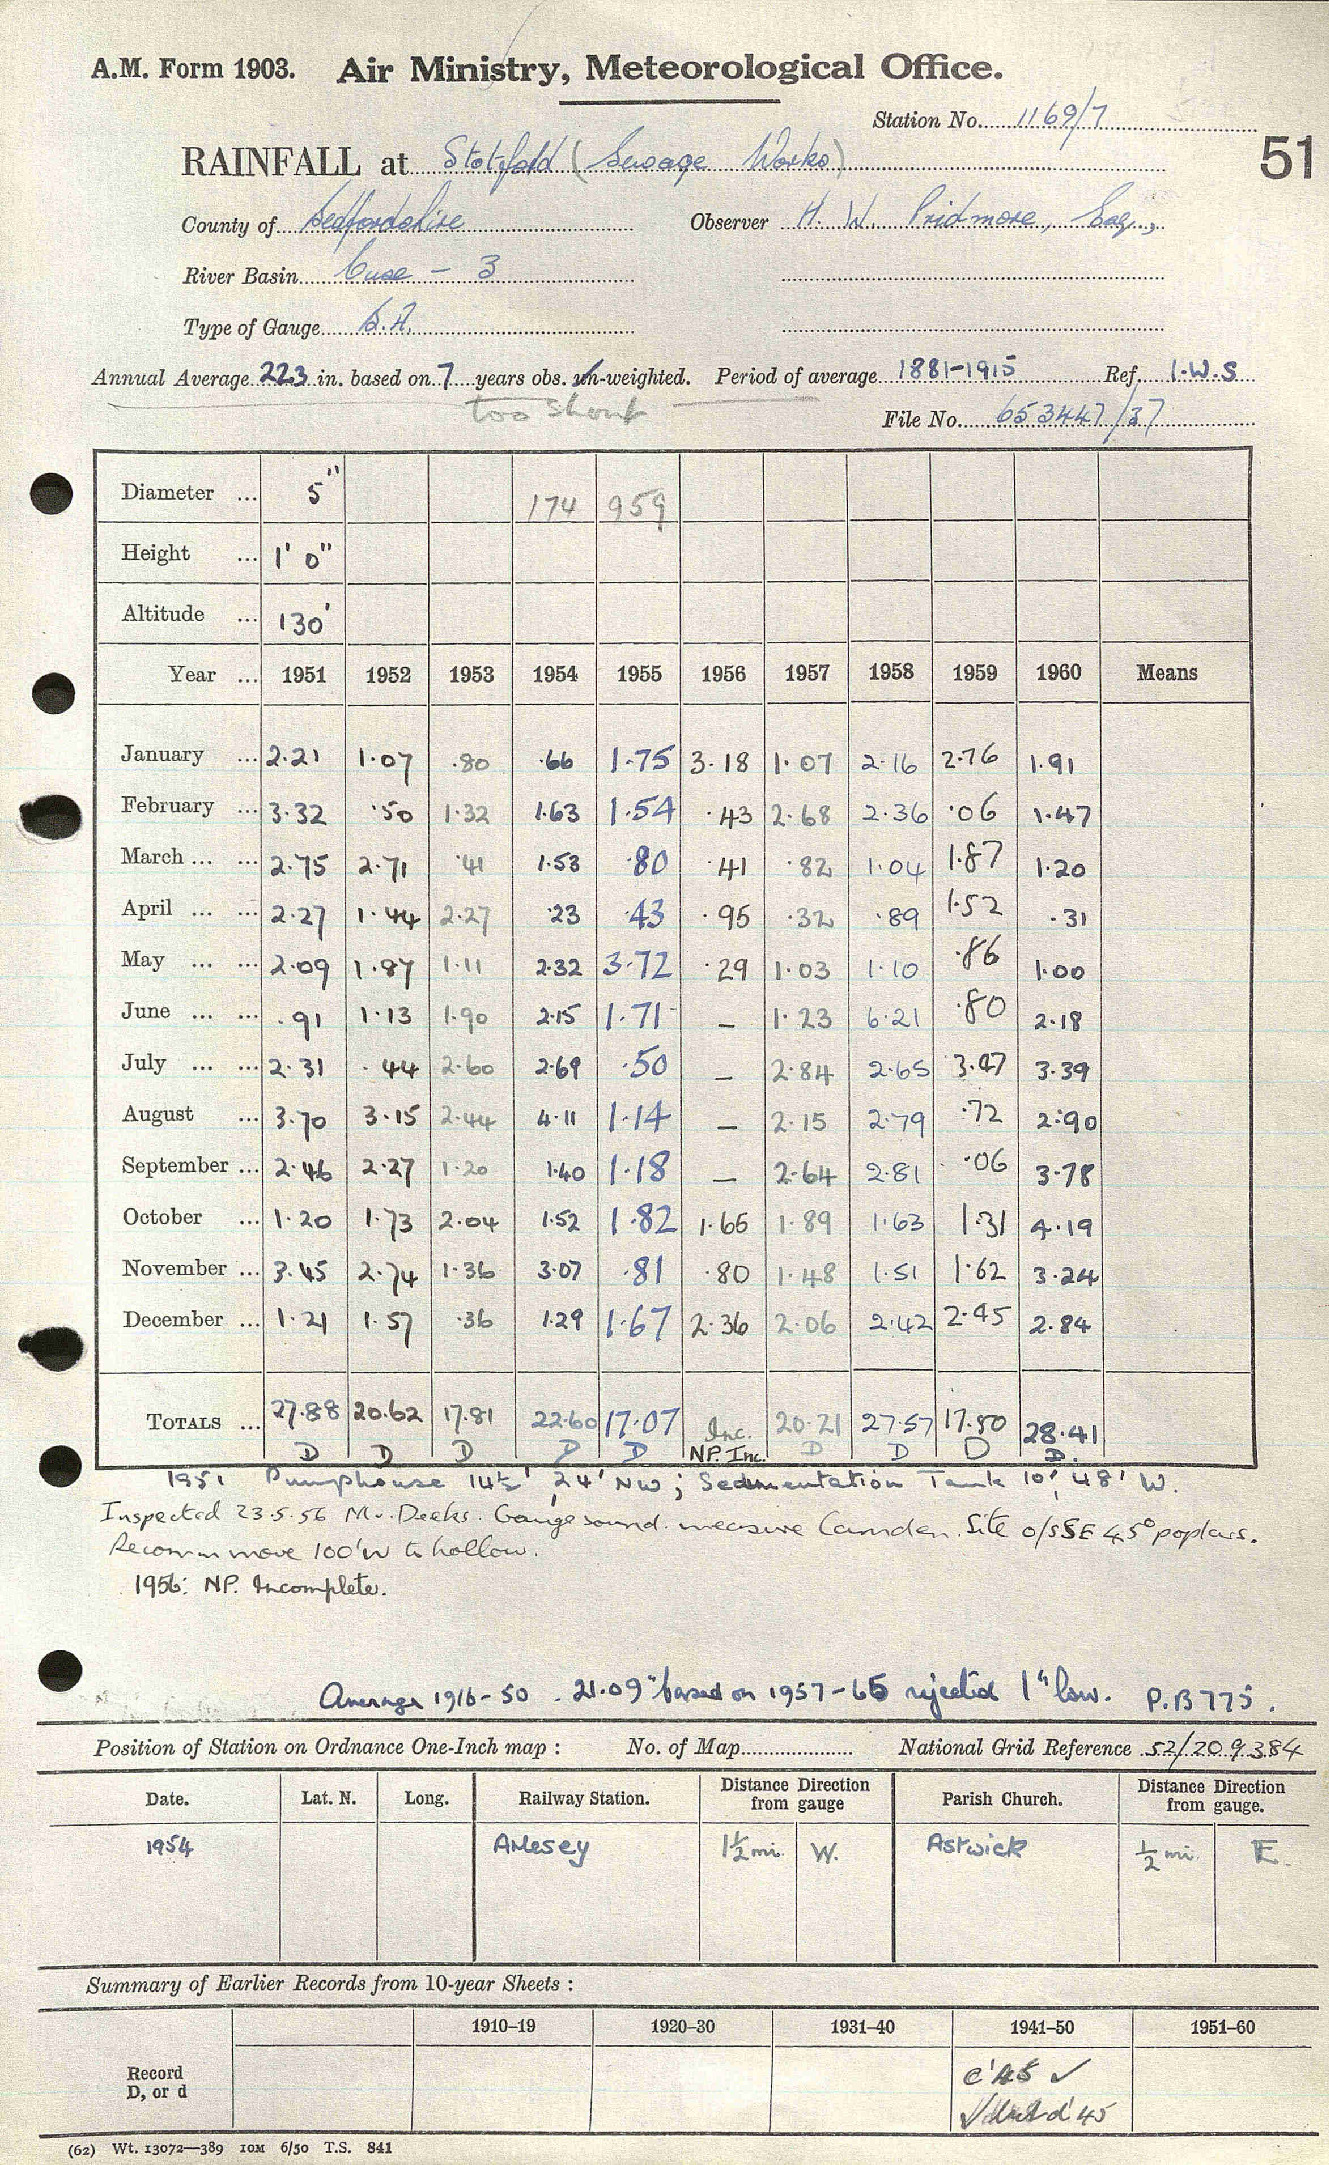 A.M. Form 1903. Air Ministry, Meteorological Office.
Station No. 1169/7
51
RAINFALL at Stotfold (Sewage Works)
County of Bedfordshire Observer H. W. Pridmore, Esq.,
River Basin Ouse - 3
Type of Gauge S.R.
Annual Average 22.3 in. based on 7 years obs. un-weighted. Period of average 1881-1915 Ref. I.W.S
too short
File No. 653447/37
Diameter ... 5" 174 959
Height ... 1' 0"
Altitude ... 130'
Year ... 1951 1952 1953 1954 1955 1956 1957 1958 1959 1960 Means
January ... 2.21 1.07 .80 .66 1.75 3.18 1.07 2.16 2.76 1.91
February ... 3.32 .50 1.32 1.63 1.54 .43 2.68 2.36 .06 1.47
March ... ... 2.75 2.71 .41 1.53 .80 .41 .82 1.04 1.87 1.20
April ... ... 2.27 1.44 2.27 .23 .43 .95 .32 .89 1.52 .31
May ... ... 2.09 1.87 1.11 2.32 3.72 .29 1.03 1.10 .86 1.00
June ... ... .91 1.13 1.90 2.15 1.71 — 1.23 6.21 .80 2.18
July ... ... 2.31 .44 2.60 2.69 .50 — 2.84 2.65 3.47 3.39
August ... 3.70 3.15 2.44 4.11 1.14 — 2.15 2.79 .72 2.90
September ... 2.46 2.27 1.20 1.40 1.18 — 2.64 2.81 .06 3.78
October ... 1.20 1.73 2.04 1.52 1.82 1.66 1.89 1.63 1.31 4.19
November ... 3.45 2.74 1.36 3.07 .81 .80 1.48 1.51 1.62 3.24
December ... 1.21 1.57 .36 1.29 1.67 2.36 2.06 2.42 2.45 2.84
TOTALS ... 27.88 20.62 17.81 22.60 17.07 Inc. 20.21 27.57 17.50 28.41
D D D D D NP. Inc. D D D D.
1951 Pumphouse 14½' 24' NW; Sedimentation Tank 10', 48' W.
Inspected 23.5.56 Mr. Deeks. Gauge sound. measure Camden. Site o/s SE 45° poplars.
Recomm move 100' W to hollow.
1956: NP. Incomplete.
Average 1916-50. 21.09" based on 1957-65 rejected 1" low. P.B 775.
Position of Station on Ordnance One-Inch map : No. of Map National Grid Reference 52/209384
Date. Lat. N. Long. Railway Station. Distance Direction from gauge Parish Church. Distance Direction from gauge.
1954 Arlesey 1½ mi. W. Astwick ½ mi. E.
Summary of Earlier Records from 10-year Sheets :
1910–19 1920–30 1931–40 1941–50 1951–60
Record
D, or d
c'45 ✓
d'45
(62) Wt. 13072—389 10M 6/50 T.S. 841